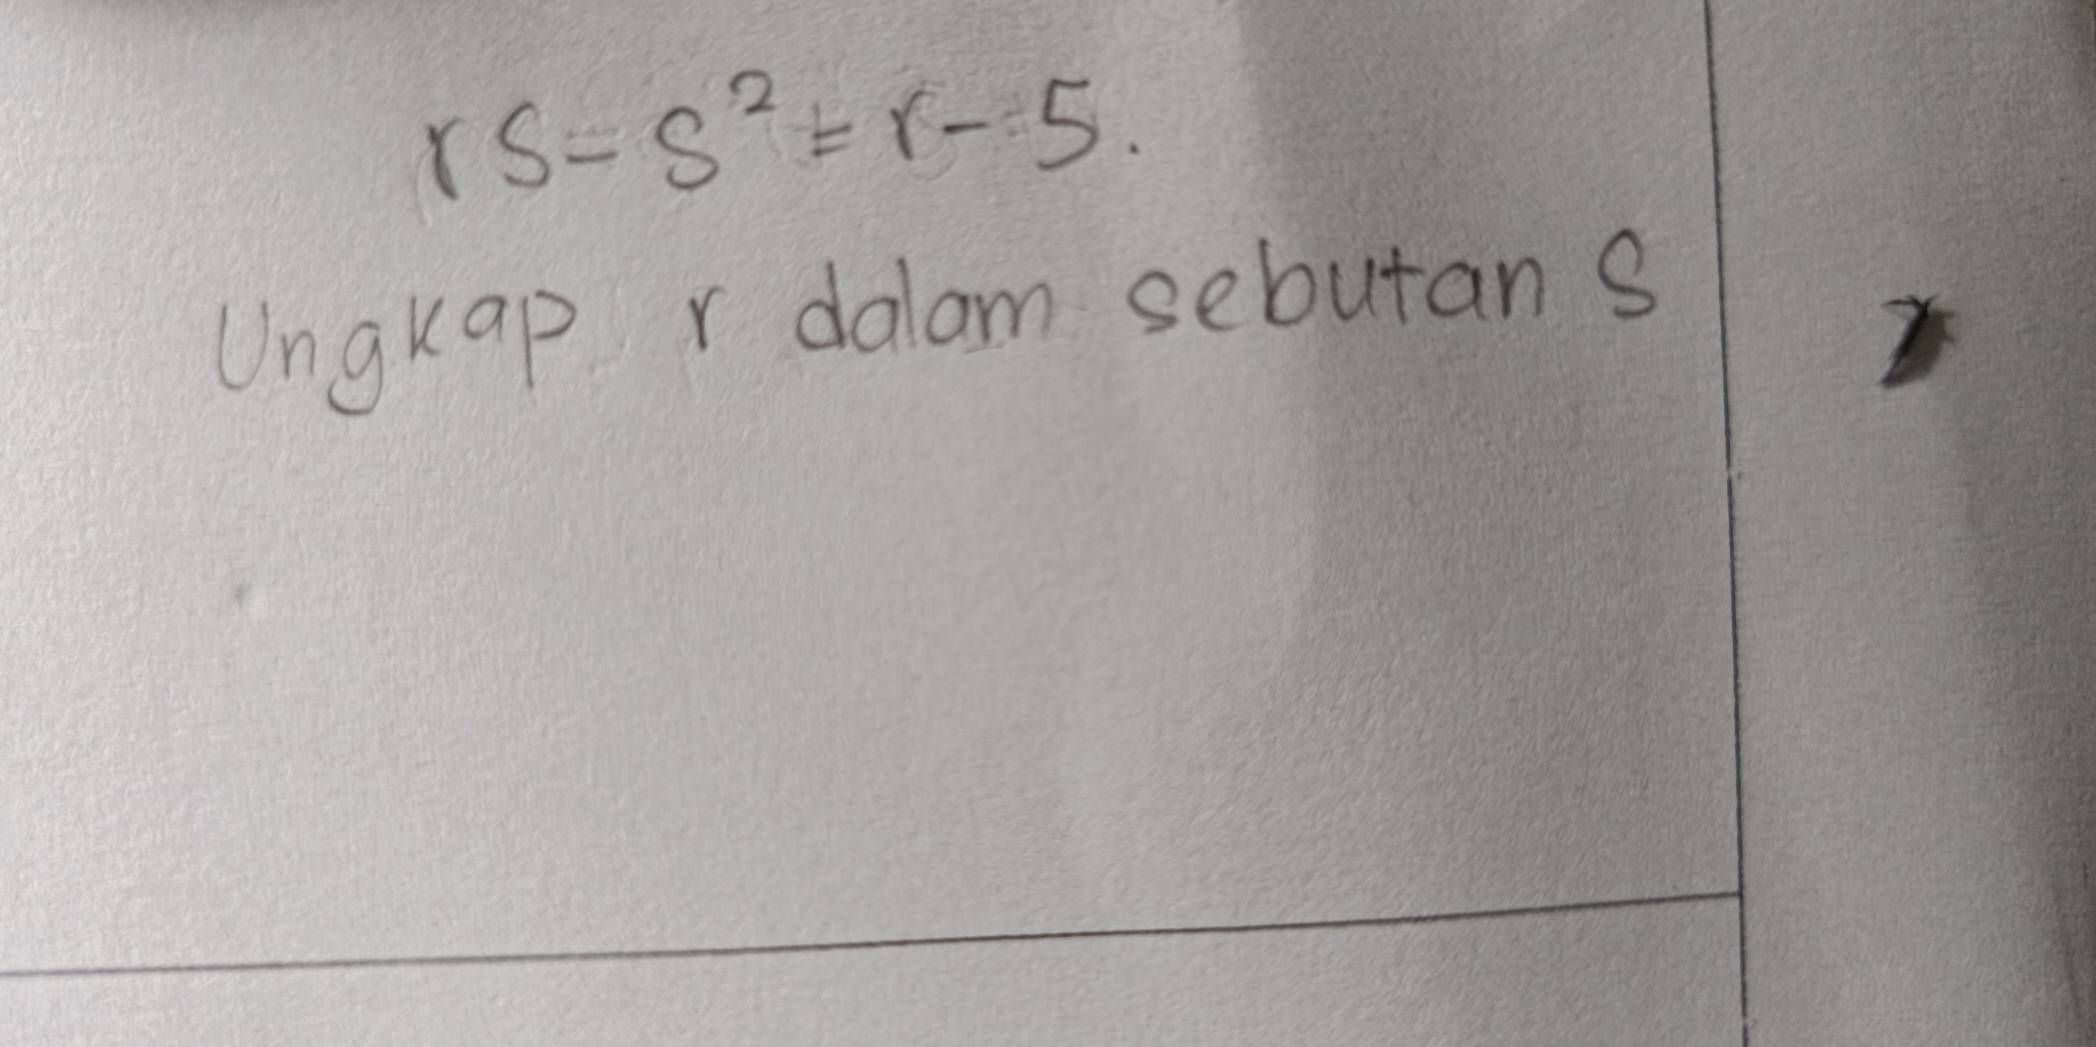 rs = s² ± r - 5.
Ungkap r dalam sebutan s